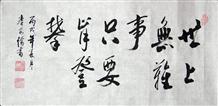 世上
無難
事
只要
肯登
攀
丙戌年